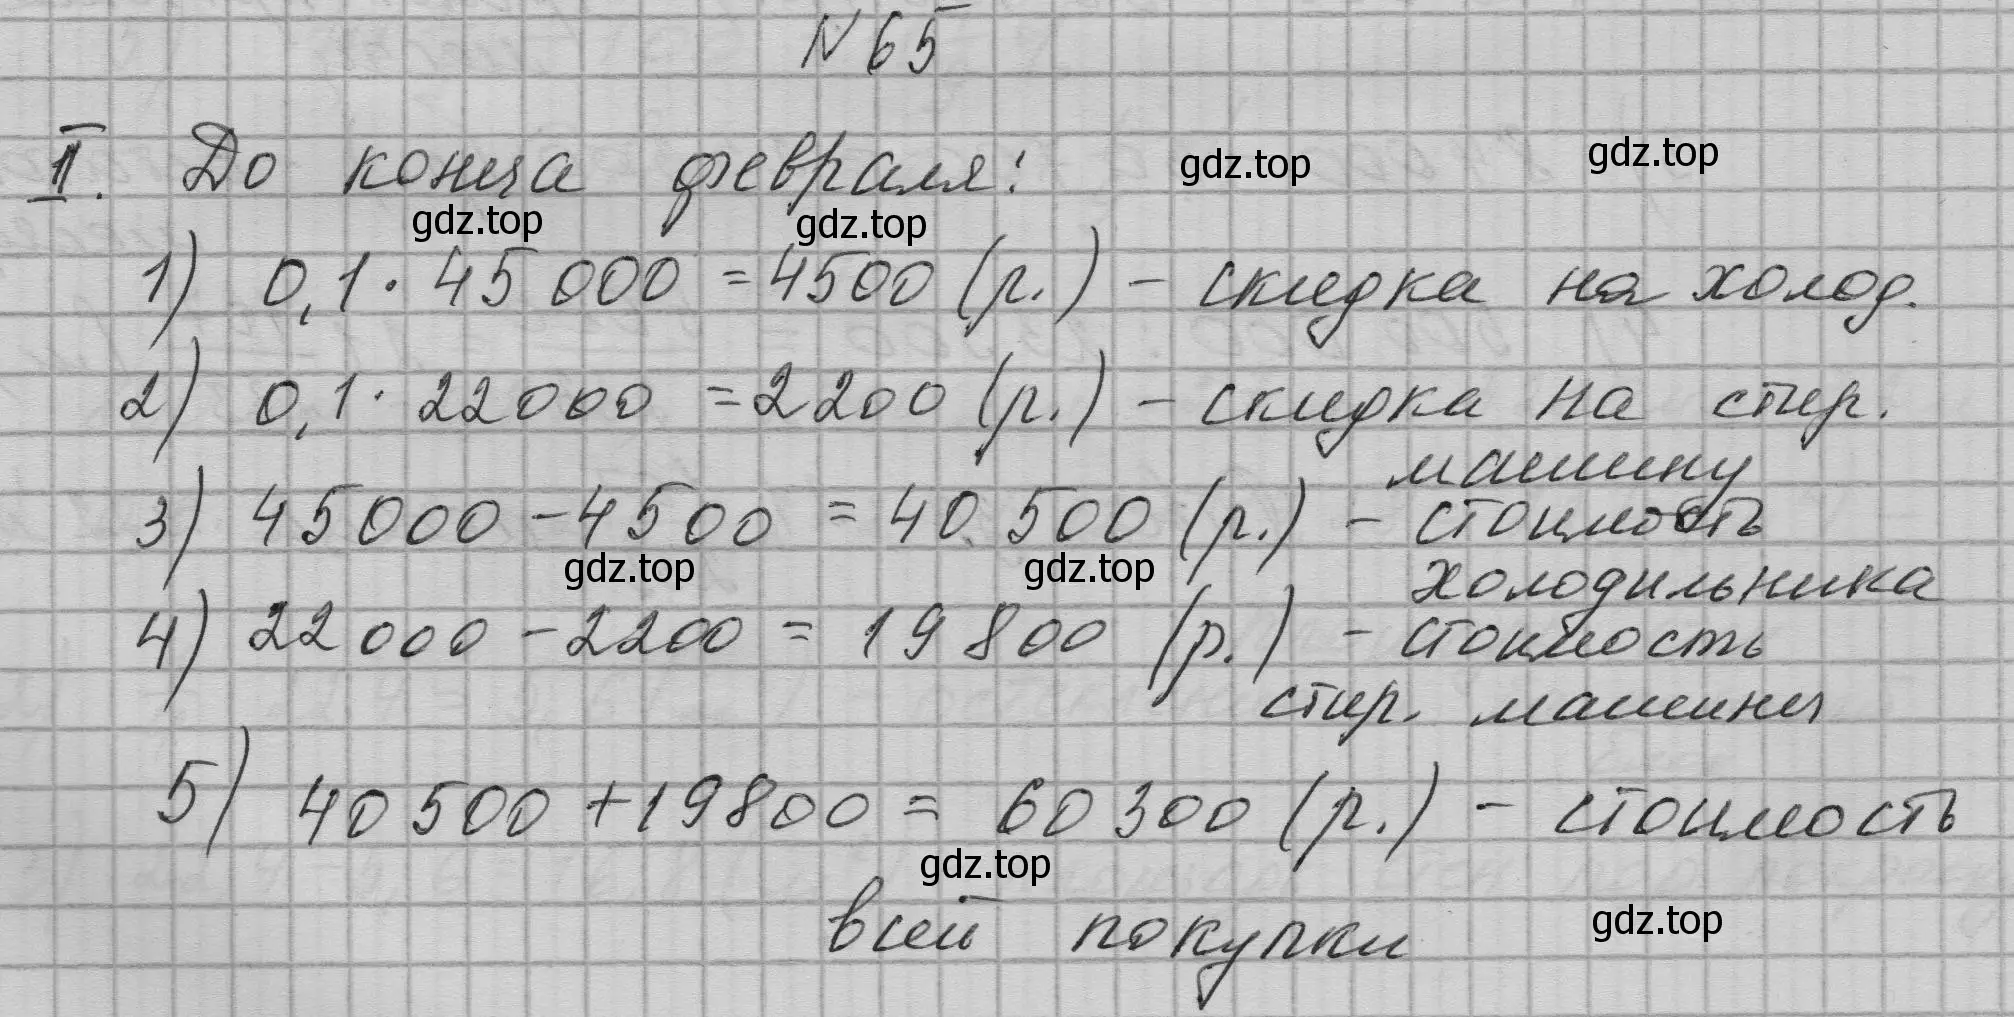 N 65
I. До конца февраля:
gdz.top
gdz.top
gdz.top
gdz.top
1) 0,1 · 45 000 = 4500 (р.) - скидка на холод.
2) 0,1 · 22000 = 2200 (р.) - скидка на стир.
машину
3) 45000 - 4500 = 40 500 (р.) - стоимость
gdz.top
gdz.top
холодильника
4) 22000 - 2200 = 19 800 (р.) - стоимость
стир. машины
5) 40 500 + 19800 = 60 300 (р.) - стоимость
gdz.top
всей покупки
gdz.top